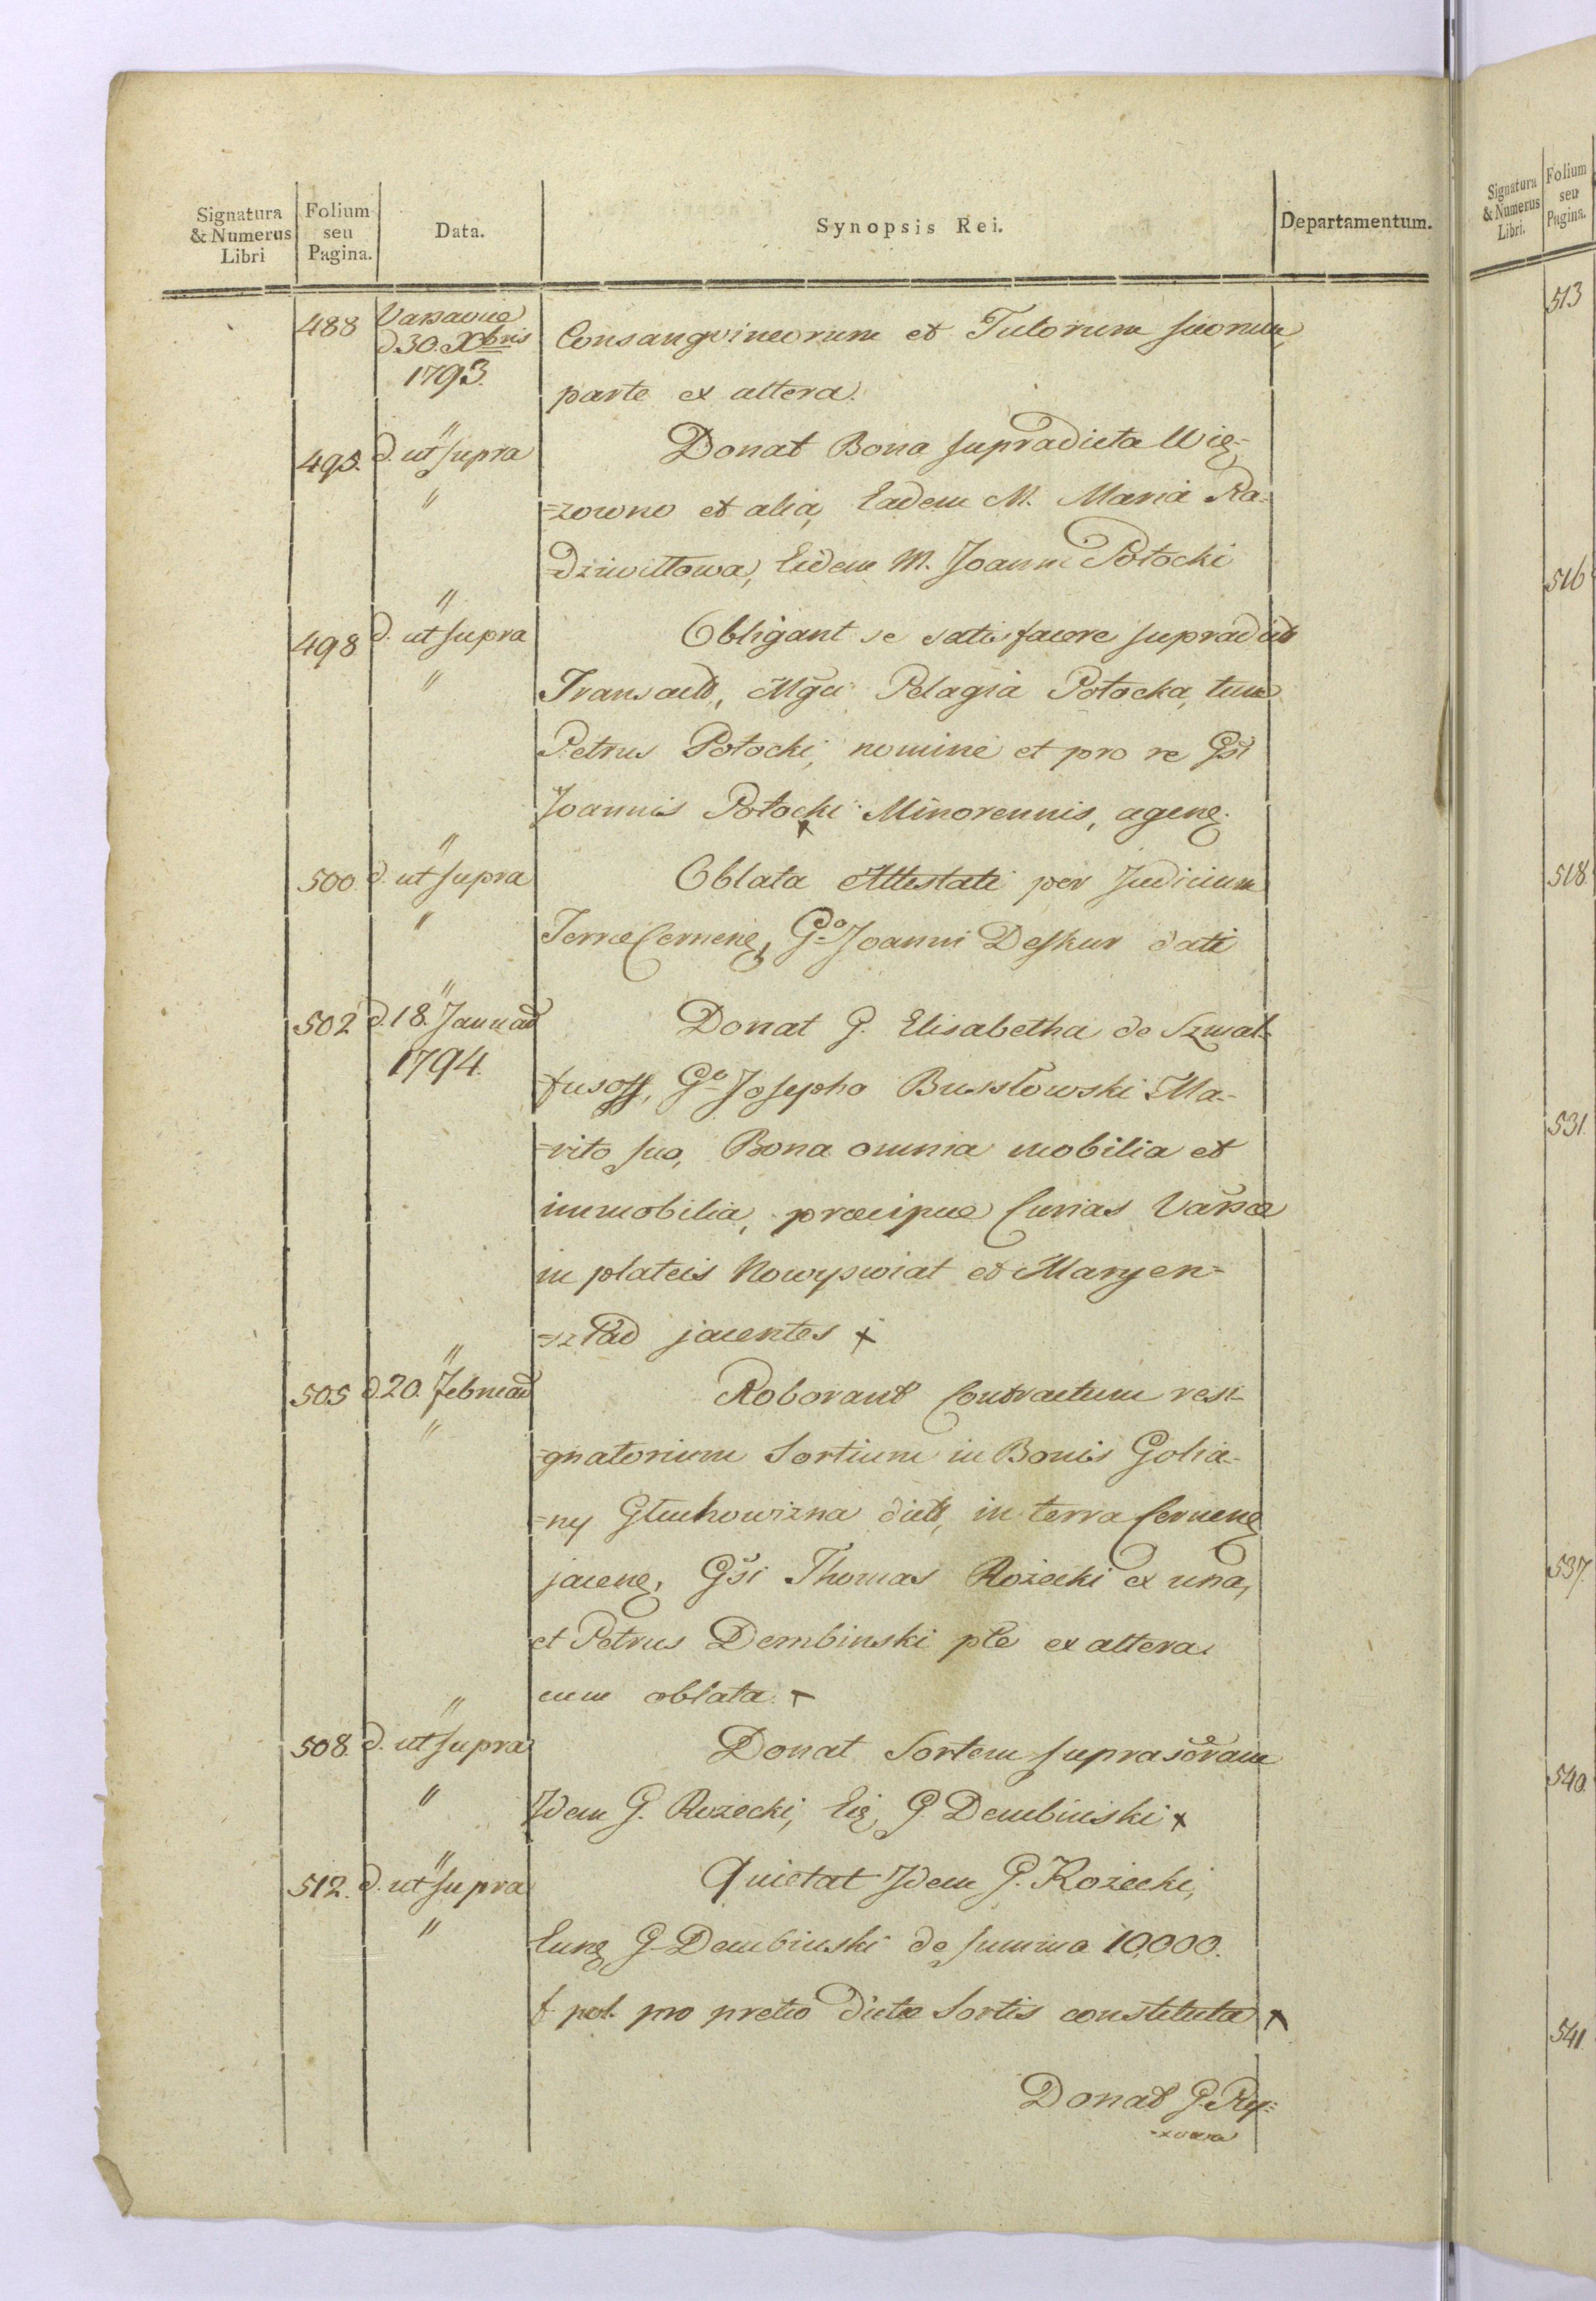 Signatura & Numerus Libri
Folium seu Pagina.
Data.
Synopsis Rei.
Departamentum.
488 Varsaviae d. 30. Xbris 1793. Consangvineorum et Tutorum suorum,
parte ex altera.
495. d. ut supra Donat Bona supradicta Wię-
=zowno et alia, Eadem M. Maria Ra-
=dziwiłłowa, Eidem M. Joanni Potocki
498 d. ut supra Obligant se satisfacere supradict
Transact, Mgci Pelagia Potocka, tum
Petrus Potocki, nomine et pro re Gsi
Joannis Potocki Minorennis, agenę.
500. d. ut supra Oblata Attestati per Judicium
Terrae Cernenę, Go Joanni Deskur dati
502 d. 18. Januarii 1794. Donat G. Elisabetha de Szmal-
fusoff, Go Josepho Bussłowski Ma-
=rito suo, Bona omnia mobilia et
immobilia, praecipue Curias Varsae
in plateis Nowyswiat et Maryen-
=sztad jacentes x
505 d. 20. Februarii Roborant Contractum resi-
=gnatorium Sortium in Bonis Golia-
=ny Głuchowizna dict, in terra Cernenę
jacenę, Gsi Thomas Rozecki ex una,
et Petrus Dembinski pte ex altera
cum oblata. x
508. d. ut supra Donat Sortem suprascram
Idem G. Rozecki, Eię G. Dembinski x
512. d. ut supra Quietat Idem G. Rozecki,
Eunę G. Dembinski de summa 10,000.
f. pol. pro pretio dictae Sortis constituta x
Donat G. Ry=
513
516
518.
531.
537.
540.
541.